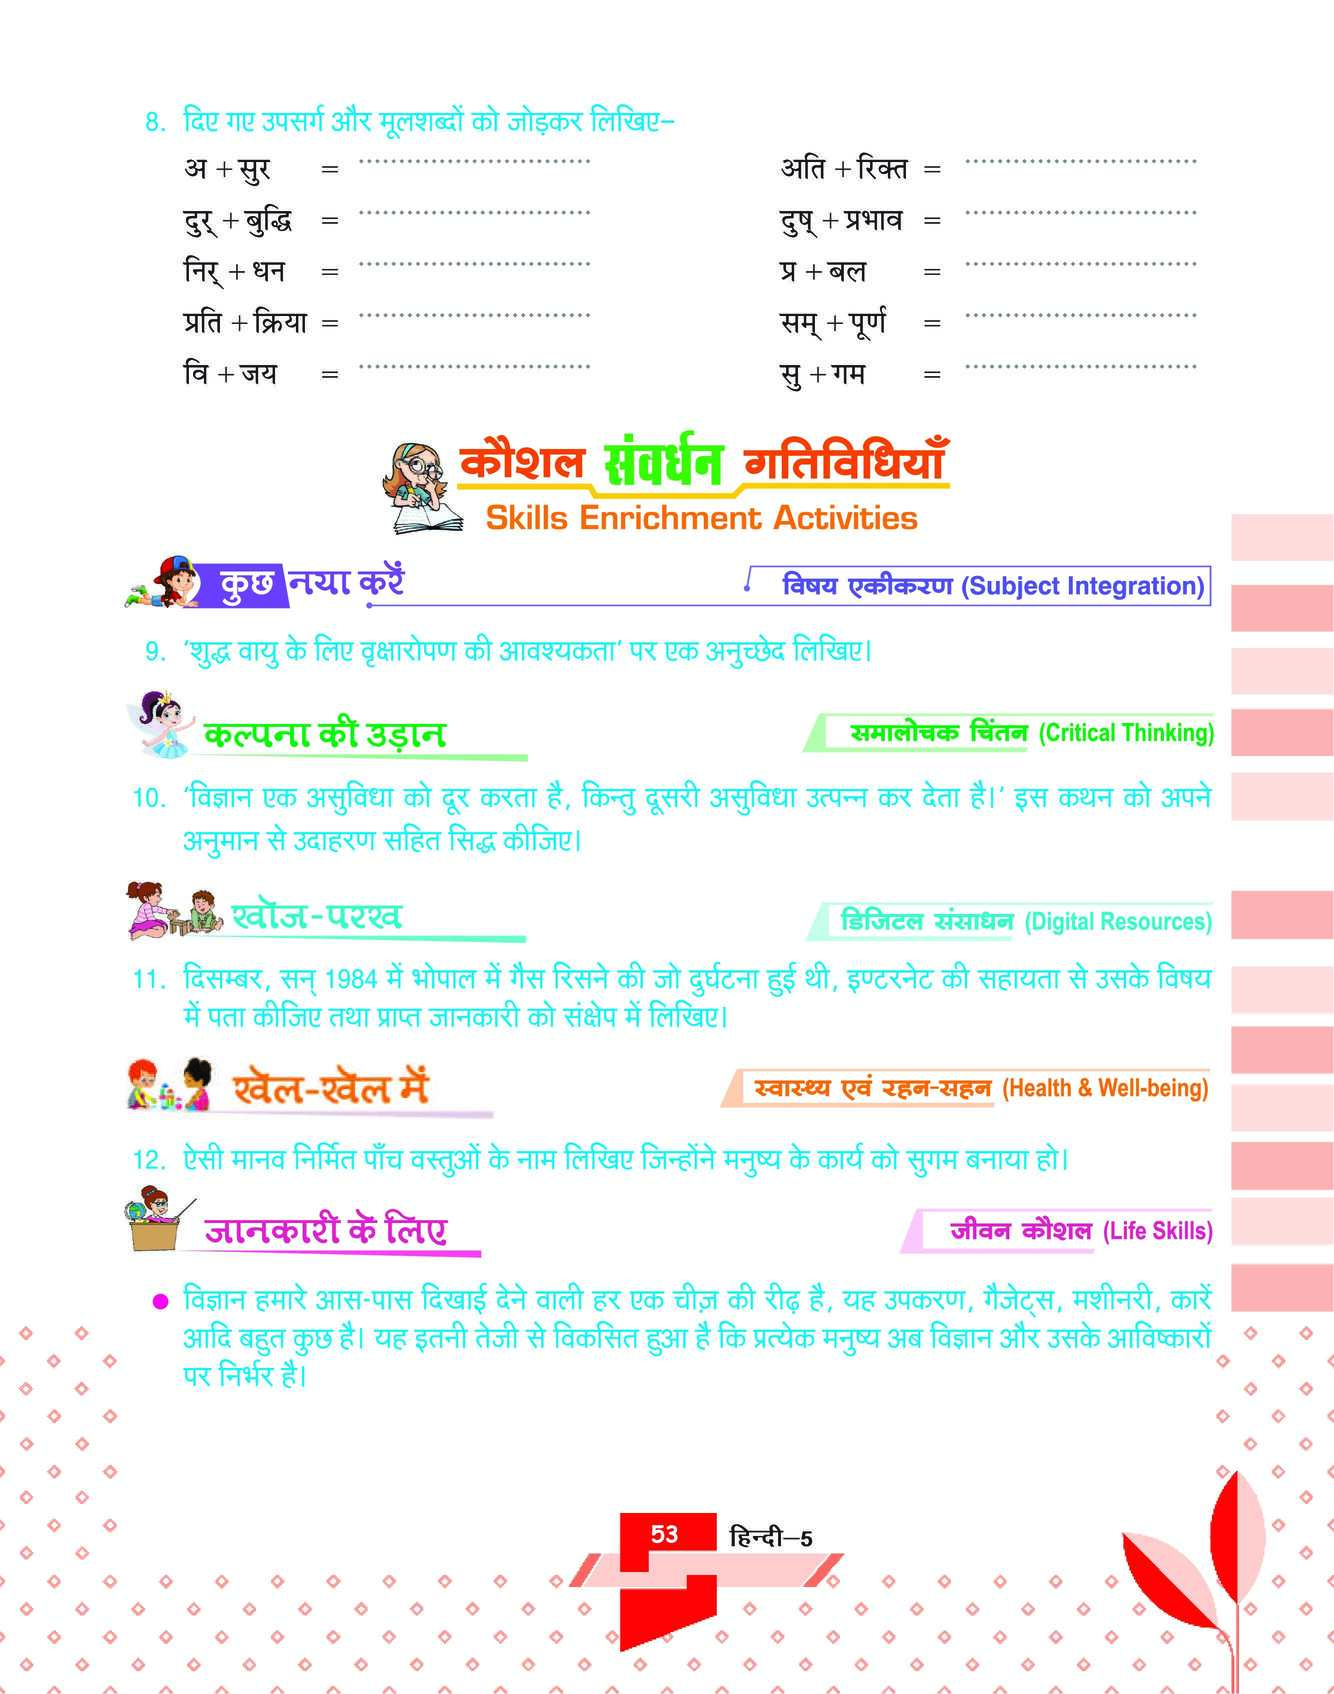 8. दिए गए उपसर्ग और मूलशब्दों को जोड़कर लिखिए–
अ + सुर = ............................
अति + रिक्त = ............................
दुर् + बुद्धि = ............................
दुष् + प्रभाव = ............................
निर् + धन = ............................
प्र + बल = ............................
प्रति + क्रिया = ............................
सम् + पूर्ण = ............................
वि + जय = ............................
सु + गम = ............................
कौशल संवर्धन गतिविधियाँ
Skills Enrichment Activities
कुछ नया करें
विषय एकीकरण (Subject Integration)
9. ‘शुद्ध वायु के लिए वृक्षारोपण की आवश्यकता’ पर एक अनुच्छेद लिखिए।
कल्पना की उड़ान
समालोचक चिंतन (Critical Thinking)
10. ‘विज्ञान एक असुविधा को दूर करता है, किन्तु दूसरी असुविधा उत्पन्न कर देता है।’ इस कथन को अपने
अनुमान से उदाहरण सहित सिद्ध कीजिए।
खोज-परख
डिजिटल संसाधन (Digital Resources)
11. दिसम्बर, सन् 1984 में भोपाल में गैस रिसने की जो दुर्घटना हुई थी, इण्टरनेट की सहायता से उसके विषय
में पता कीजिए तथा प्राप्त जानकारी को संक्षेप में लिखिए।
खेल-खेल में
स्वास्थ्य एवं रहन-सहन (Health & Well-being)
12. ऐसी मानव निर्मित पाँच वस्तुओं के नाम लिखिए जिन्होंने मनुष्य के कार्य को सुगम बनाया हो।
जानकारी के लिए
जीवन कौशल (Life Skills)
● विज्ञान हमारे आस-पास दिखाई देने वाली हर एक चीज़ की रीढ़ है, यह उपकरण, गैजेट्स, मशीनरी, कारें
आदि बहुत कुछ है। यह इतनी तेजी से विकसित हुआ है कि प्रत्येक मनुष्य अब विज्ञान और उसके आविष्कारों
पर निर्भर है।
53 हिन्दी–5